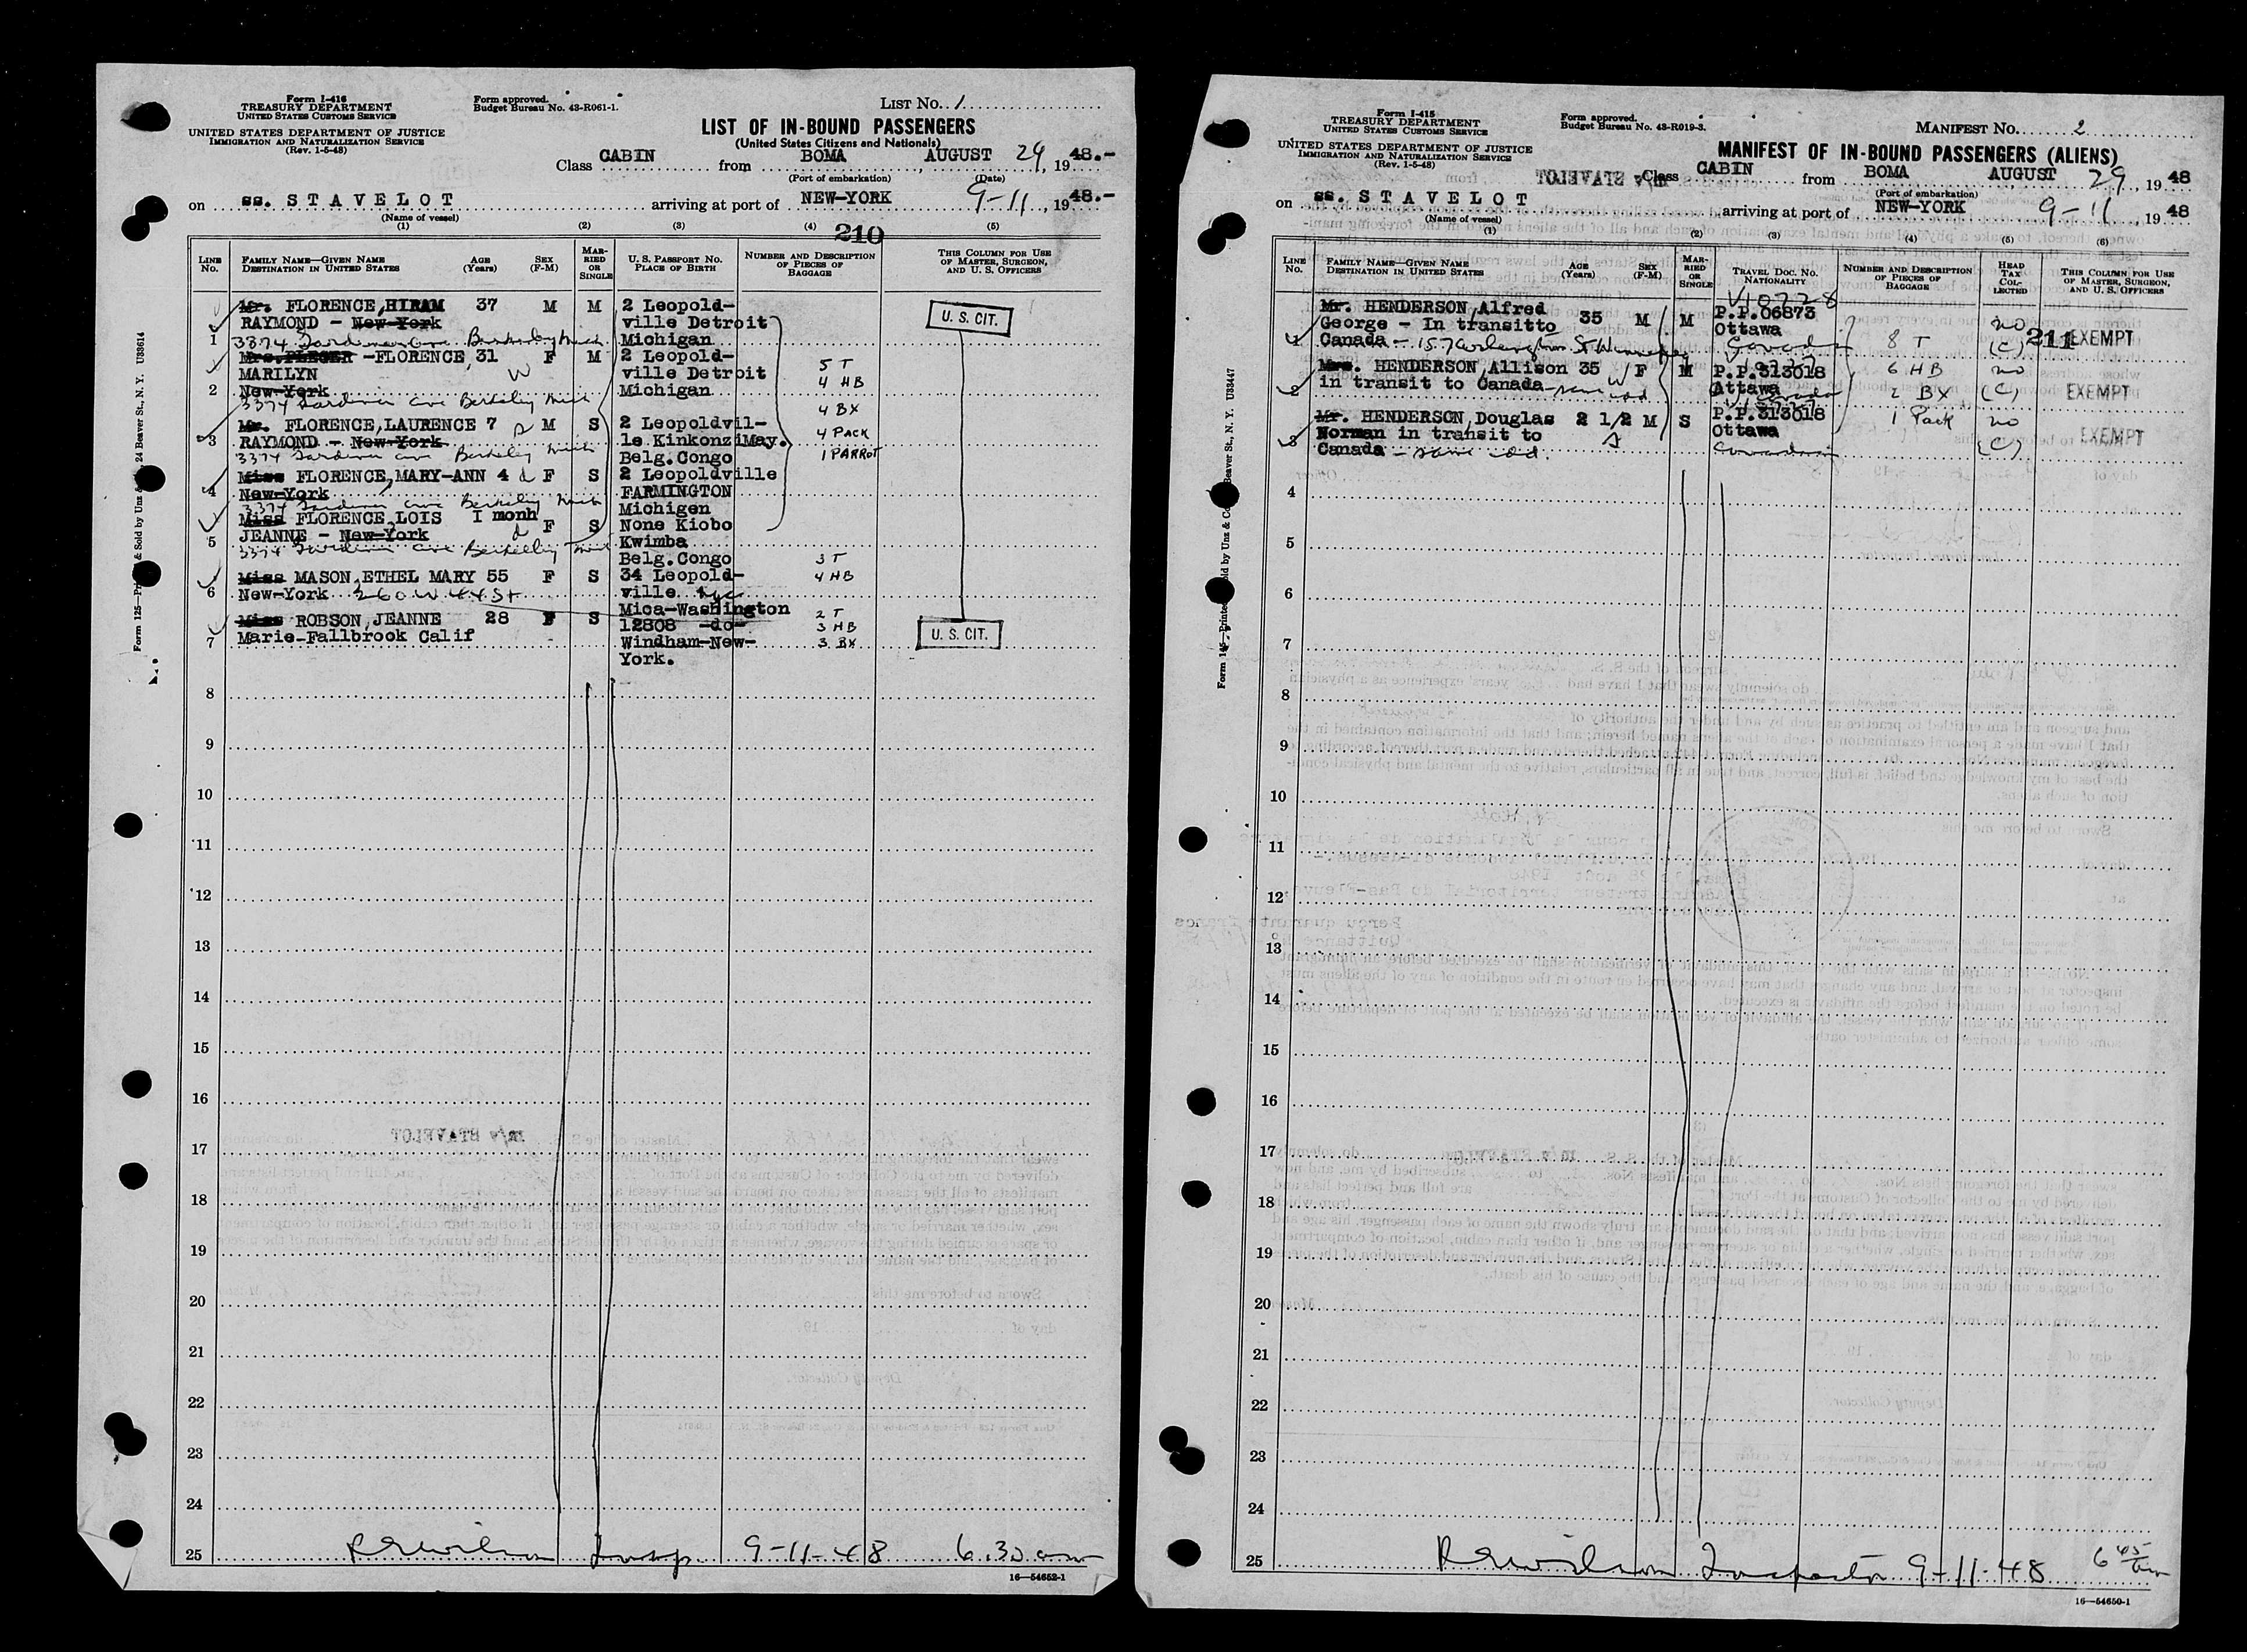 Form I-416
TREASURY DEPARTMENT
UNITED STATES CUSTOMS SERVICE
UNITED STATES DEPARTMENT OF JUSTICE
IMMIGRATION AND NATURALIZATION SERVICE
(Rev. 1-5-48)
Form approved.
Budget Bureau No. 43-R061-1.
LIST NO. 1
LIST OF IN-BOUND PASSENGERS
(United States Citizens and Nationals)
Class CABIN from BOMA, AUGUST 29, 19 48.-
(Port of embarkation) (Date)
on ss. STAVELOT arriving at port of NEW-YORK 9-11, 19 48.-
(Name of vessel)
(1) (2) (3) (4) (5)
210
LINE No.
FAMILY NAME—GIVEN NAME
DESTINATION IN UNITED STATES
AGE (Years)
SEX (F-M)
MARRIED OR SINGLE
U. S. PASSPORT NO.
PLACE OF BIRTH
NUMBER AND DESCRIPTION OF PIECES OF BAGGAGE
THIS COLUMN FOR USE OF MASTER, SURGEON, AND U. S. OFFICERS
Mr. FLORENCE,HIRAM 37 M M 2 Leopold-
RAYMOND - New-York ville Detroit
1 Michigan
U. S. CIT.
-FLORENCE,31 F M 2 Leopold-
MARILYN W ville Detroit
2 New-York Michigan
3374 Gardiner ave Berkeley Mich
5 T
4 HB
4 BX
4 PACK
1 PARROT
Mr. FLORENCE,LAURENCE 7 M S 2 Leopoldvil-
3 RAYMOND - New-York le KinkonziMay.
3374 Gardiner ave Berkeley Mich Belg.Congo
Miss FLORENCE,MARY-ANN 4 F S 2 Leopoldville
4 New-York FARMINGTON
3374 Gardiner ave Berkeley Mich Michigen
Miss FLORENCE,LOIS I monh F S None Kiobo
5 JEANNE - New-York Kwimba
3374 Gardiner ave Berkeley Mich Belg.Congo
Miss MASON,ETHEL MARY 55 F S 34 Leopold-
6 New-York 260 W 44 St ville
Mica-Washington
3 T
4 HB
Miss ROBSON,JEANNE 28 F S 12808 -do-
7 Marie-Fallbrook Calif Windham-New-
York.
2 T
3 HB
3 BX
U. S. CIT.
8
9
10
11
12
13
14
15
16
17
18
19
20
21
22
23
24
25 Insp. 9-11-48 6.30 am
16—54652-1
Form I-415
TREASURY DEPARTMENT
UNITED STATES CUSTOMS SERVICE
UNITED STATES DEPARTMENT OF JUSTICE
IMMIGRATION AND NATURALIZATION SERVICE
(Rev. 1-5-48)
Form approved.
Budget Bureau No. 43-R019-3.
MANIFEST NO. 2
MANIFEST OF IN-BOUND PASSENGERS (ALIENS)
Class CABIN from BOMA AUGUST 29, 19 48
(Port of embarkation)
on ss. STAVELOT arriving at port of NEW-YORK 9-11, 19 48
(Name of vessel)
(1) (2) (3) (4) (5) (6)
LINE No.
FAMILY NAME—GIVEN NAME
DESTINATION IN UNITED STATES
AGE (Years)
SEX (F-M)
MARRIED OR SINGLE
TRAVEL DOC. NO.
NATIONALITY
NUMBER AND DESCRIPTION OF PIECES OF BAGGAGE
HEAD TAX COLLECTED
THIS COLUMN FOR USE OF MASTER, SURGEON, AND U. S. OFFICERS
Mr. HENDERSON,Alfred 35 M M P.P.06873
George - In transitto Ottawa
1 Canada - 8 T no (C) 211 EXEMPT
Mrs. HENDERSON,Allison 35 W F M P.P.313018
2 in transit to Canada - Attawa
6 HB no
2 BX (C) EXEMPT
Mr. HENDERSON,Douglas 2 1/2 M S P.P.313018
Norman in transit to Ottawa
3 Canada - Canadian
1 Pack no (C) EXEMPT
4
5
6
7
8
9
10
11
12
13
14
15
16
17
18
19
20
21
22
23
24
25 Inspector 9-11-48 6 45 am
16—54650-1